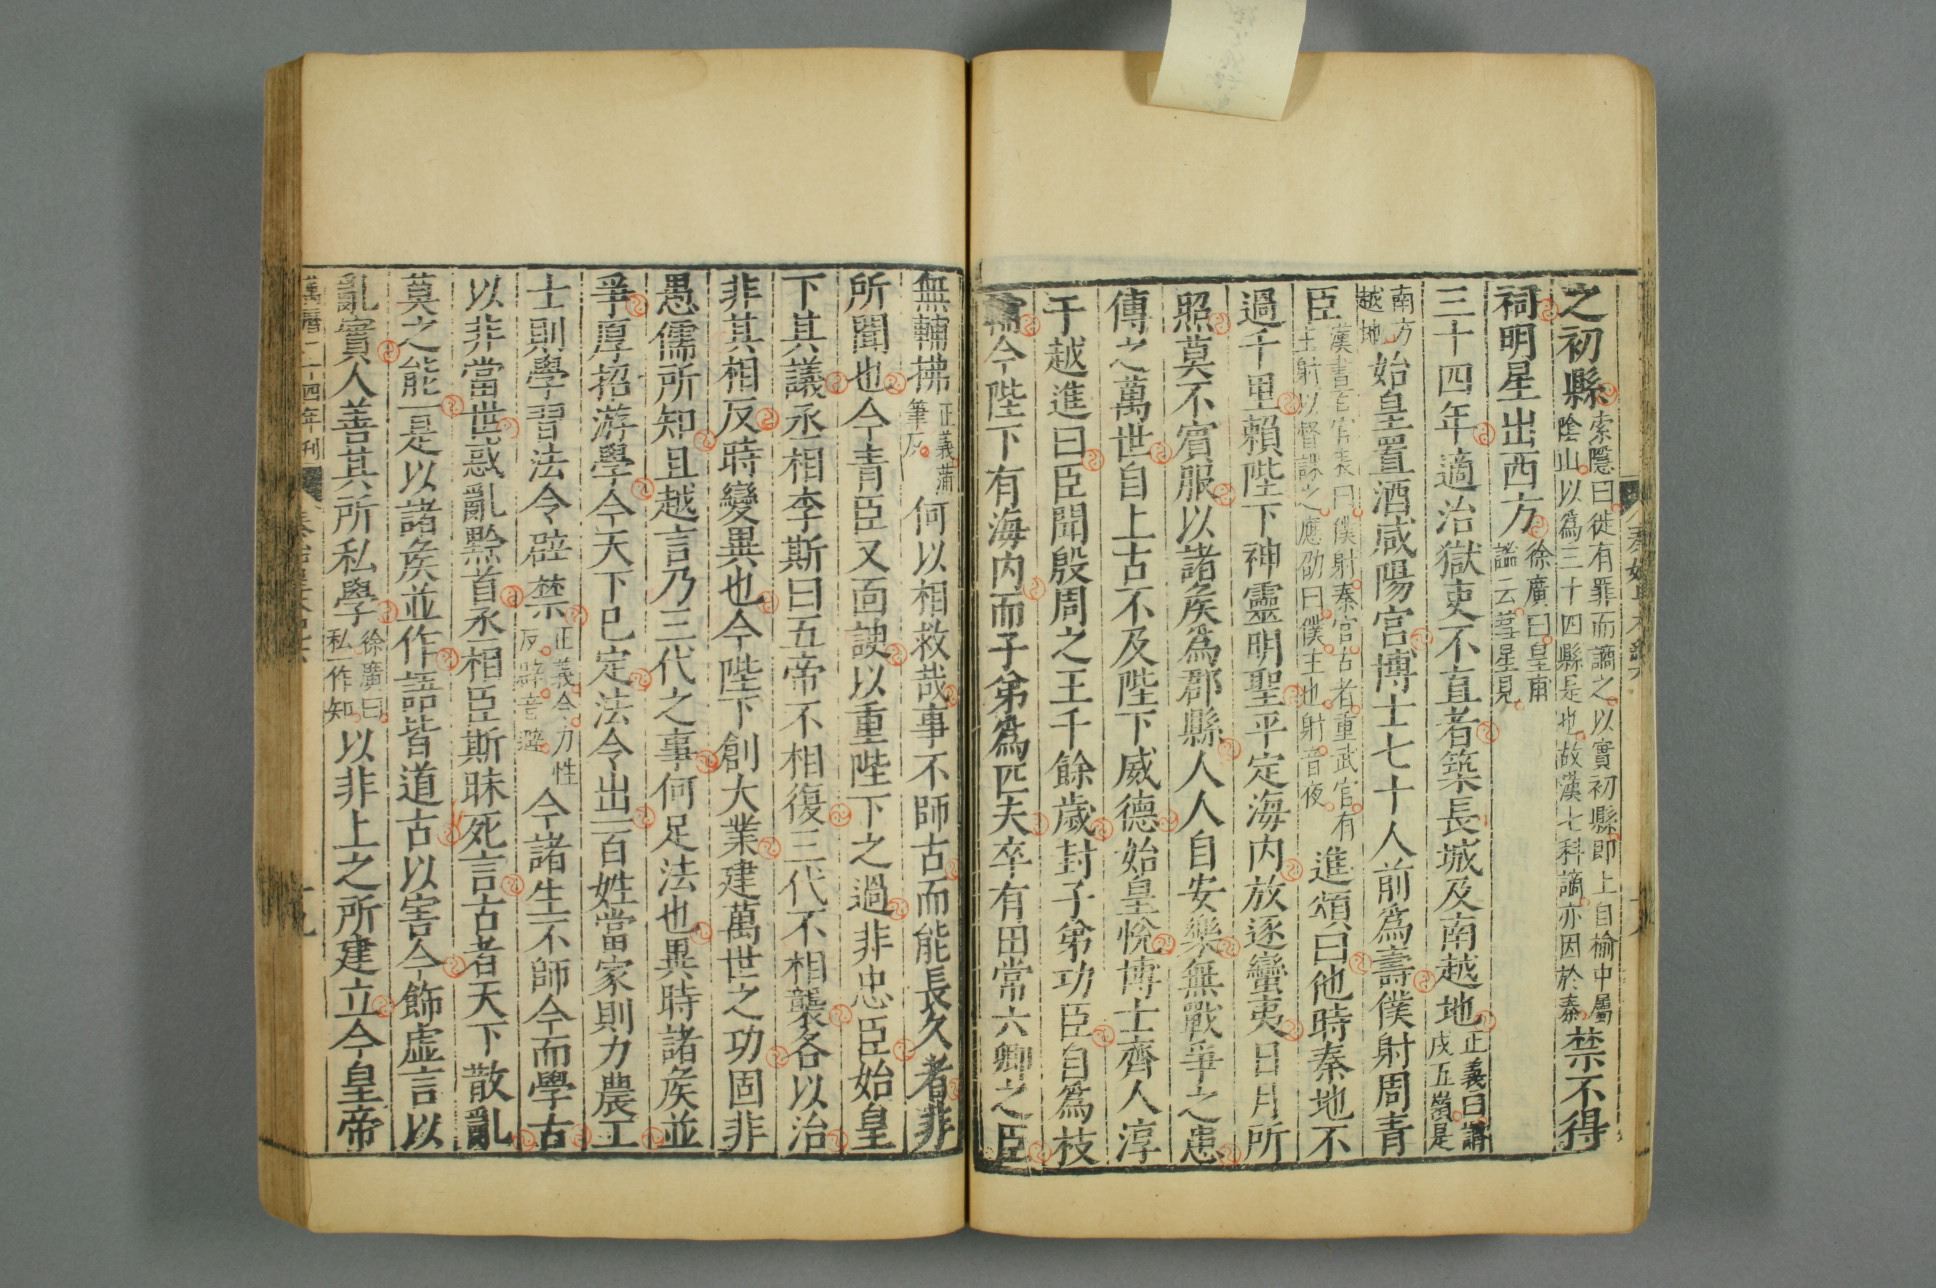 之初縣索隱曰徙有罪而謫之以實初縣即上自榆中屬陰山以爲三十四縣是也故漢七科謫亦因於秦禁不得
祠明星出西方徐廣曰皇甫謐云彗星見
三十四年適治獄吏不直者築長城及南越地正義曰謂戍五嶺是
南方越地始皇置酒咸陽宮博士七十人前爲壽僕射周青
臣漢書百官表曰僕射秦官古者重武官有主射以督課之應劭曰僕主也射音夜進頌曰他時秦地不
過千里賴陛下神靈明聖平定海內放逐蠻夷日月所
照莫不賓服以諸矦爲郡縣人人自安樂無戰爭之患
傳之萬世自上古不及陛下威德始皇悅博士齊人淳
于越進曰臣聞殷周之王千餘歲封子弟功臣自爲枝
輔今陛下有海內而子弟爲匹夫卒有田常六卿之臣
無輔拂正義蒲筆反何以相救哉事不師古而能長久者非
所聞也今青臣又面諛以重陛下之過非忠臣始皇
下其議丞相李斯曰五帝不相復三代不相襲各以治
非其相反時變異也今陛下創大業建萬世之功固非
愚儒所知且越言乃三代之事何足法也異時諸矦並
爭厚招游學今天下已定法令出一百姓當家則力農工
士則學習法令辟禁正義令力性反辟音避今諸生不師今而學古
以非當世惑亂黔首丞相臣斯昧死言古者天下散亂
莫之能一是以諸矦並作語皆道古以害今飾虛言以
亂實人善其所私學徐廣曰私一作知以非上之所建立今皇帝
萬曆二十四年刊